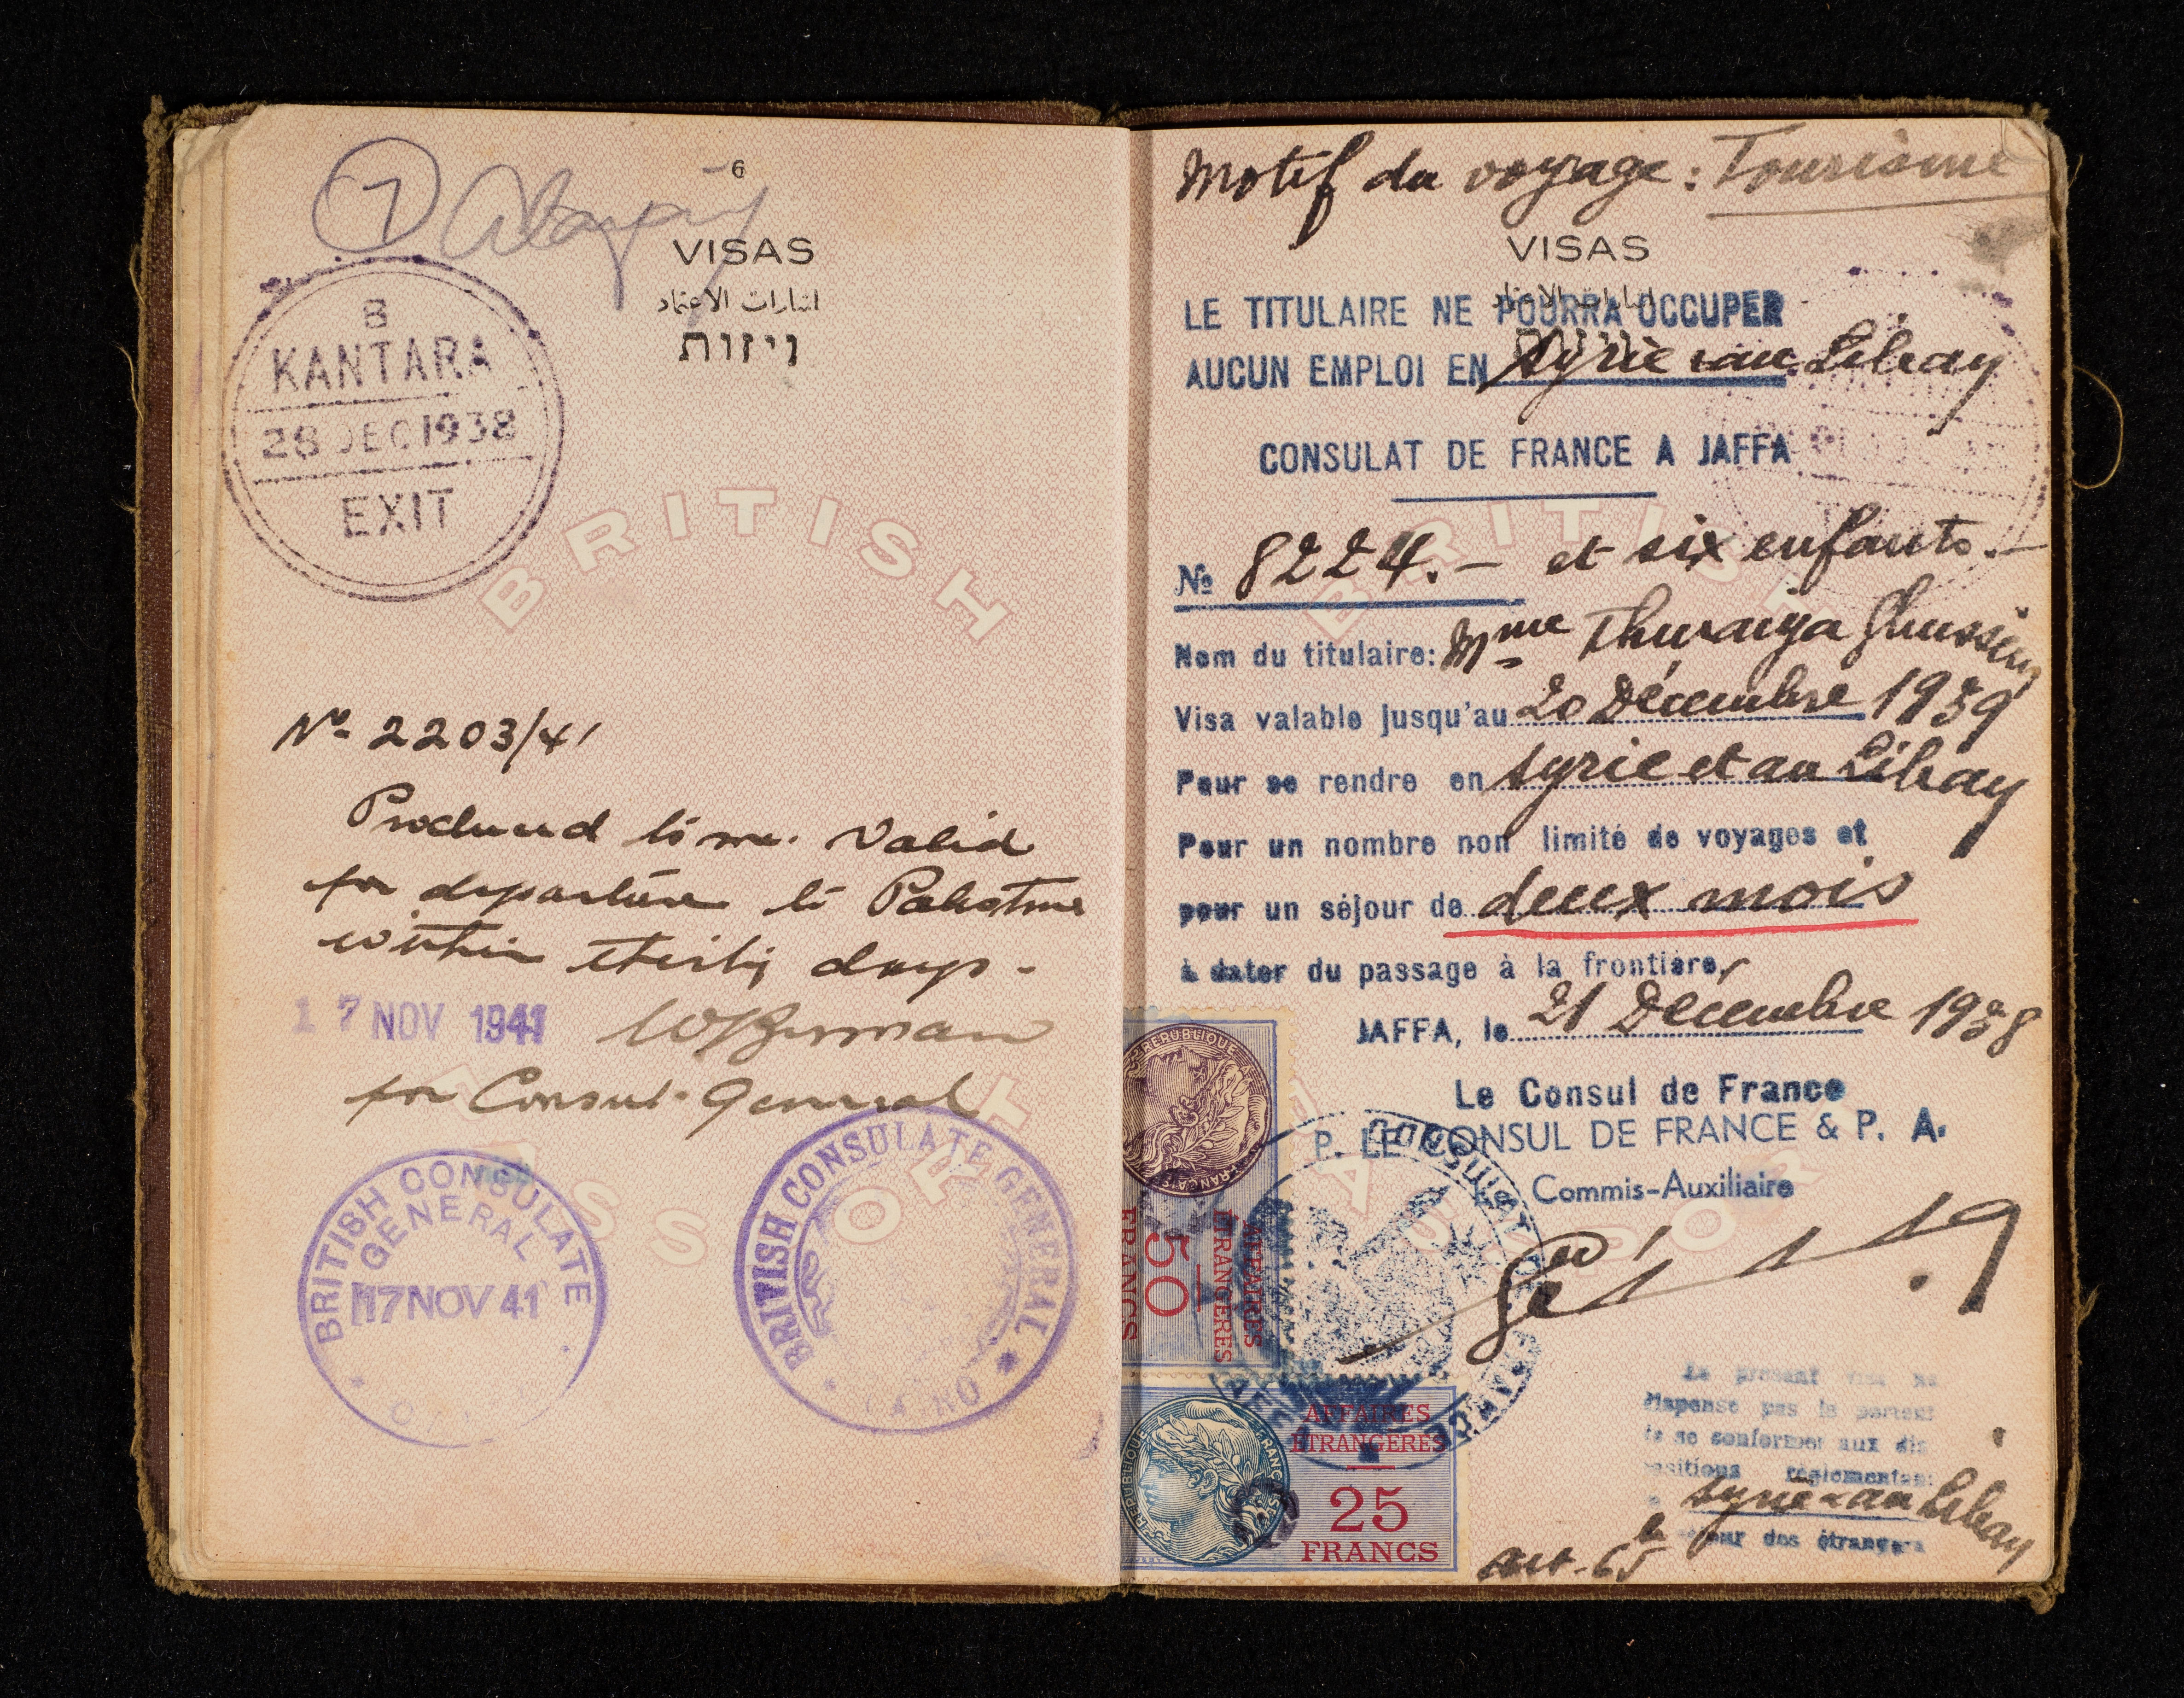 6
7
VISAS
اشارات الاعتماد
ויזות
B
KANTARA
28 DEC 1938
EXIT
BRITISH
PASSPORT
No. 2203/41
Produced to me. Valid
for departure to Palestine
within thirty days.
17 NOV 1941
for Consul-General
BRITISH CONSULATE
GENERAL
17 NOV 41
BRITISH CONSULATE GENERAL
CAIRO
Motif du voyage: Tourisme
VISAS
اشارات الاعتماد
ויזות
LE TITULAIRE NE POURRA OCCUPER
AUCUN EMPLOI EN Syrie & au Liban
CONSULAT DE FRANCE A JAFFA
No 8224.- et six enfants.-
Nom du titulaire: Mme Thuraiya Ghussein
Visa valable jusqu'au 20 Décembre 1939
Pour se rendre en Syrie et au Liban
Pour un nombre non limité de voyages et
pour un séjour de deux mois
à dater du passage à la frontière,
JAFFA, le 21 Décembre 1938
Le Consul de France
P. LE CONSUL DE FRANCE & P. A.
Le Commis-Auxiliaire
BRITISH
PASSPORT
REPUBLIQUE FRANÇAISE
AFFAIRES
ETRANGÈRES
50
FRANCS
CONSULAT DE FRANCE
JAFFA
REPUBLIQUE FRANÇAISE
AFFAIRES
ETRANGÈRES
25
FRANCS
Le présent visa ne
dispense pas le porteur
de se conformer aux dis
positions réglementant
Syrie & au Liban
le séjour des étrangers
art. 65